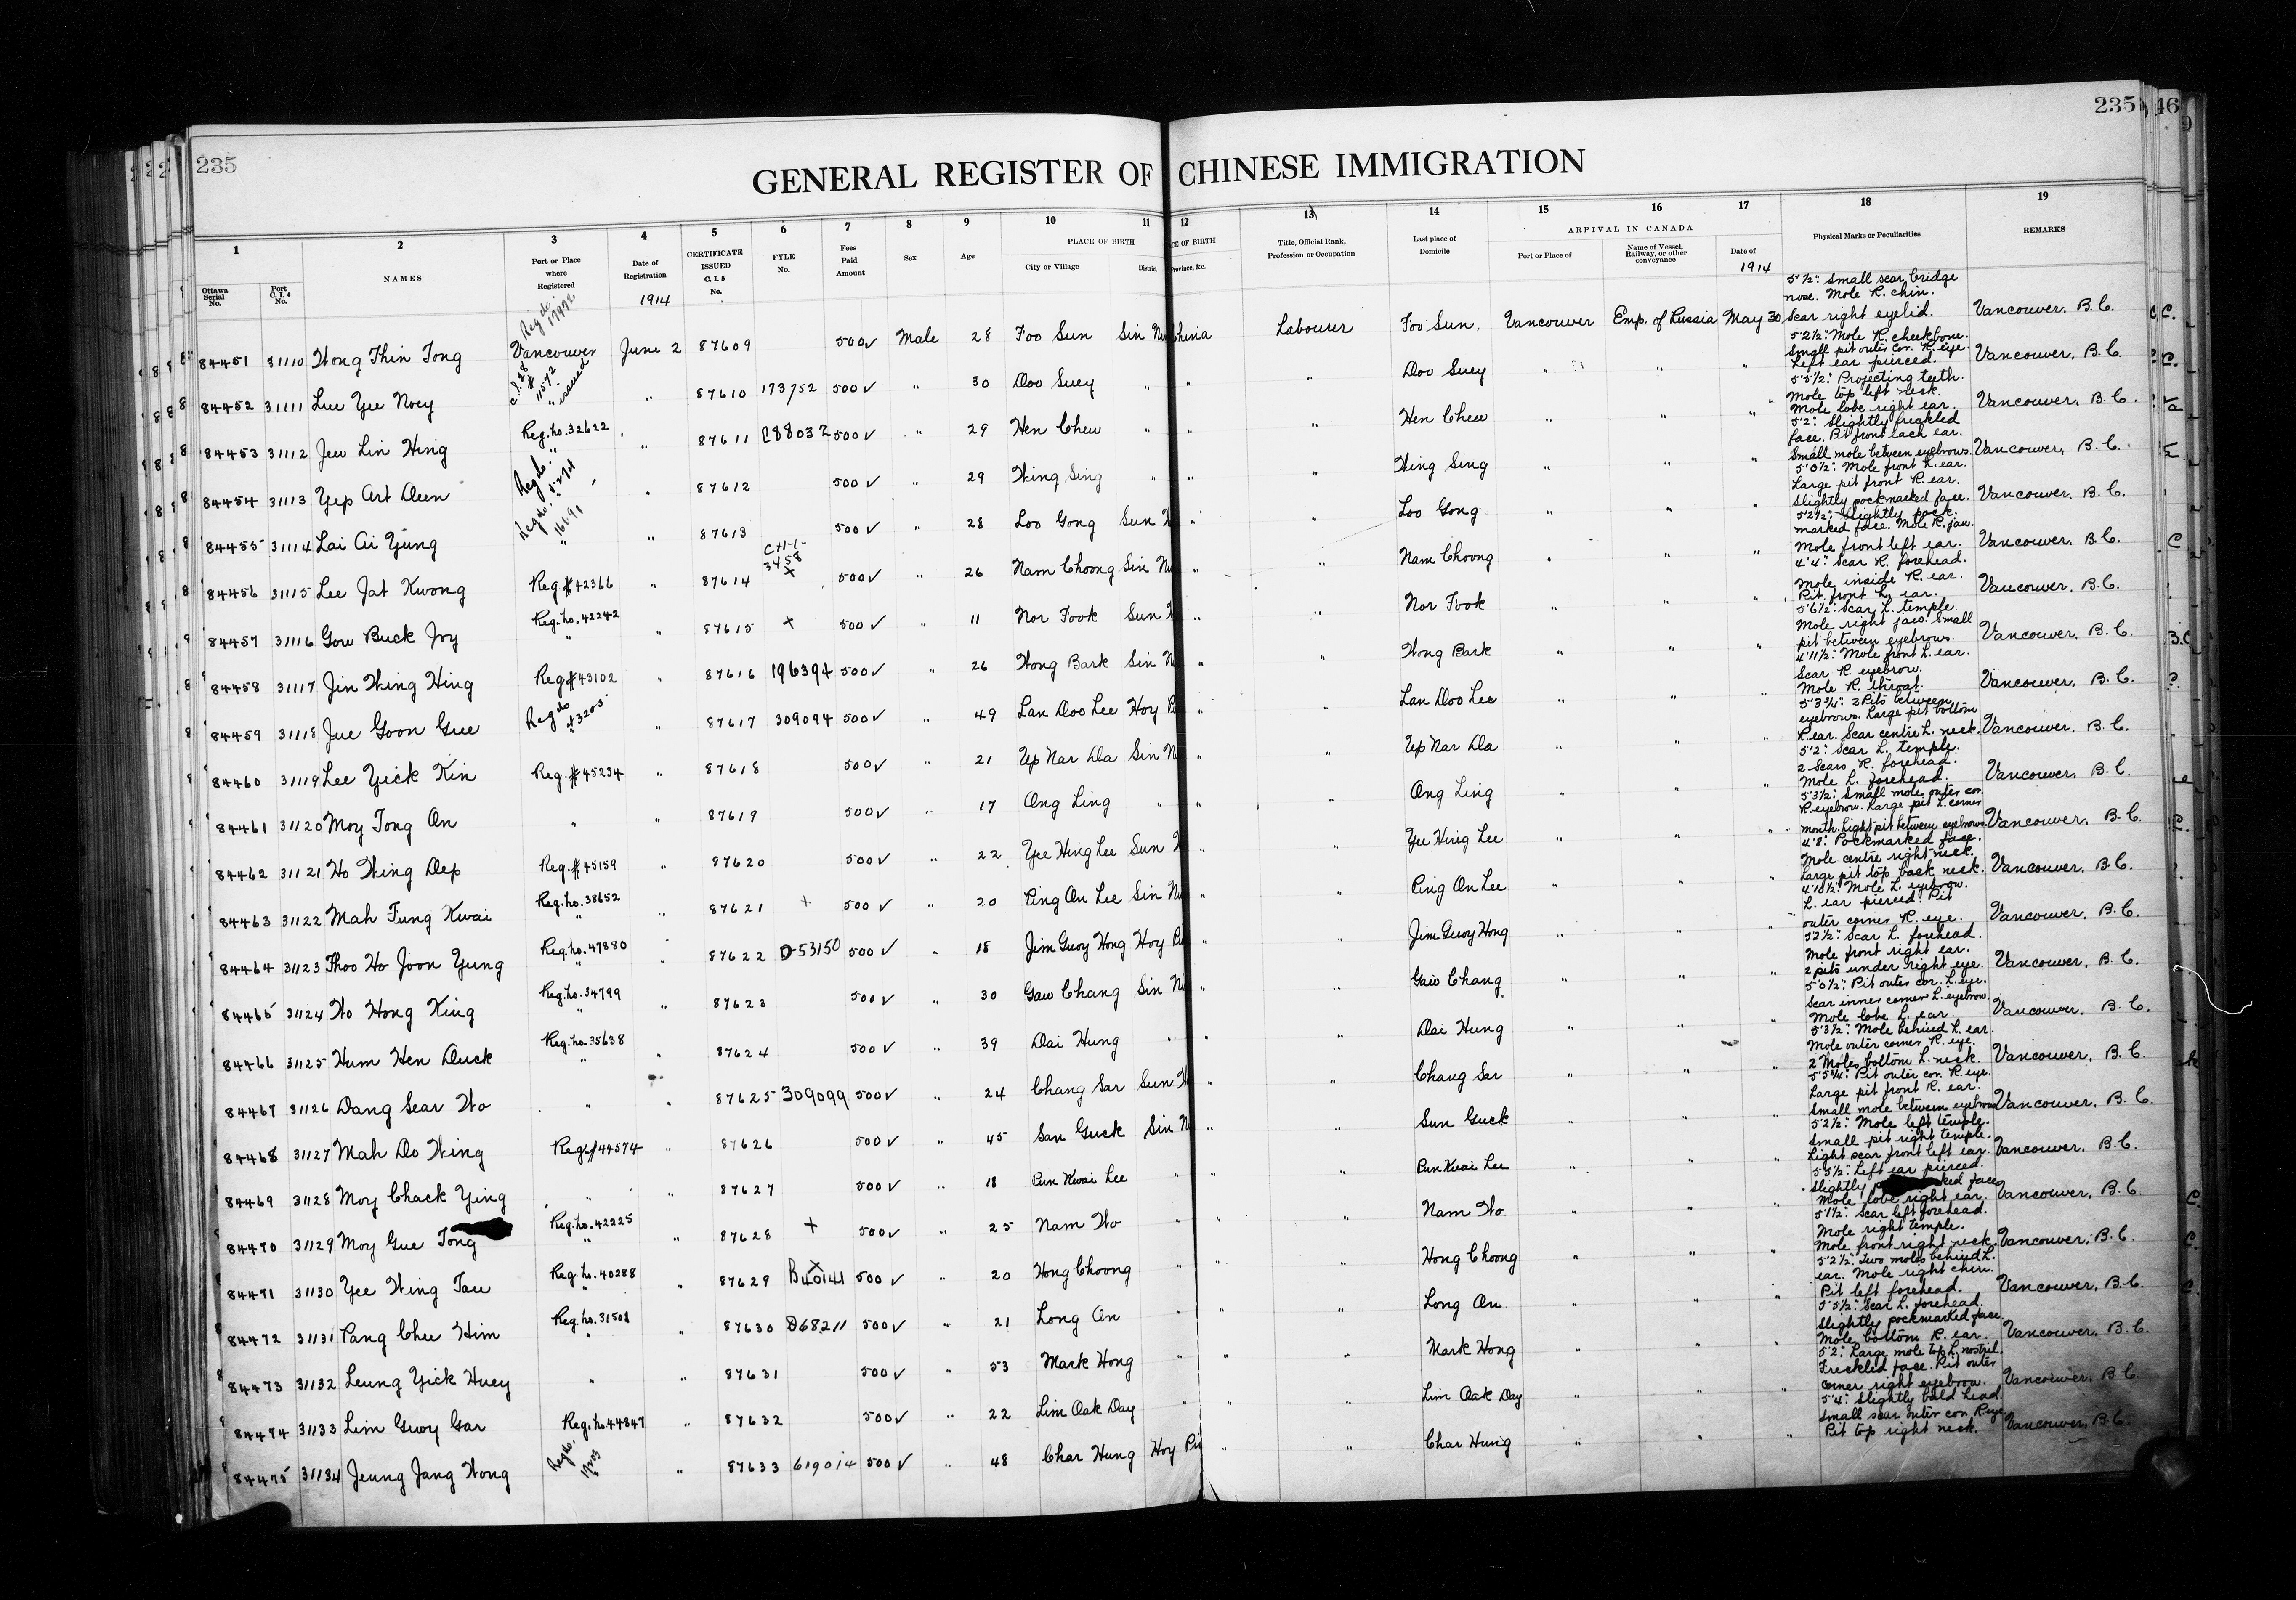 235
235
46
GENERAL REGISTER OF CHINESE IMMIGRATION
1 2 3 4 5 6 7 8 9 10 11 12 13 14 15 16 17 18 19
Ottawa Serial No.
Port C.I.4 No.
NAMES
Port or Place where Registered
Date of Registration
1914
CERTIFICATE ISSUED C.I.5 No.
FYLE No.
Fees Paid Amount
Sex
Age
PLACE OF BIRTH
City or Village
District
CE OF BIRTH
Province, &c.
Title, Official Rank, Profession or Occupation
Last place of Domicile
ARRIVAL IN CANADA
Port or Place of
Name of Vessel, Railway, or other conveyance
Date of
1914
Physical Marks or Peculiarities
REMARKS
84451 31110 Wong Thin Tong Vancouver June 2 87609 500 ✓ Male 28 Foo Sun Sin Ni China Labourer Foo Sun. Vancouver Emp. of Russia May 30 5'½": Small scar bridge nose. Mole R. chin. Scar right eyelid. Vancouver, B.C.
84452 31111 Lue Yee Noey C.I.28 # 11572 issued " 87610 173752 500 ✓ " 30 Doo Suey " " " Doo Suey " " " 5'2½": Mole R. cheekbone. Small pit outer cor. R. eye. Left ear pierced. Vancouver, B.C.
84453 31112 Jew Lin Hing Reg. no. 32622 " " 87611 C88032 500 ✓ " 29 Hen Chew " " " Hen Chew " " " 5'5½": Projecting teeth. Mole top left neck. Mole lobe right ear. Vancouver, B.C.
84454 31113 Yep Art Deen " 87612 500 ✓ " 29 Wing Sing " " " Wing Sing " " " 5'2": Slightly freckled face. Pit front each ear. Small mole between eyebrows. Vancouver, B.C.
84455 31114 Lai Ai Yung " " 87613 500 ✓ " 28 Loo Gong Sun " " Loo Gong " " " 5'0½": Mole front L. ear. Large pit front R. ear. Slightly pockmarked face. Vancouver, B.C.
84456 31115 Lee Jat Kwong Reg # 42366 " 87614 CH-1-3458 x 500 ✓ " 26 Nam Choong Sin Ni " " Nam Choong " " " 5'2½": Slightly pock marked face. Mole R. jaw. Mole front left ear. Vancouver, B.C.
84457 31116 Gow Buck Joy Reg. no. 42242 " " 87615 x 500 ✓ " 11 Nor Fook Sun " " Nor Fook " " " 4'4": Scar R. forehead. Mole inside R. ear. Pit front L. ear. Vancouver, B.C.
84458 31117 Jin Wing Hing Reg # 43102 " 87616 196394 500 ✓ " 26 Wong Bark Sin Ni " " Wong Bark " " " 5'6½": Scar L. temple. Mole right jaw. Small pit between eyebrows. Vancouver, B.C.
84459 31118 Jue Goon Gee Reg no 43205 " 87617 309094 500 ✓ " 49 Lan Doo Lee Hoy Pi " " Lan Doo Lee " " " 4'11½": Mole front L. ear. Scar R. eyebrow. Mole R. throat. Vancouver, B.C.
84460 31119 Lee Yick Kin Reg. # 45234 " 87618 500 ✓ " 21 Up Nar Da Sin Ni " " Up Nar Da " " " 5'3¾": 2 Pits between eyebrows. Large pit bottom R. ear. Scar centre L. neck. Vancouver, B.C.
84461 31120 Moy Tong On " " 87619 500 ✓ " 17 Ong Ling " " " Ong Ling " " " 5'2": Scar L. temple. 2 Scars R. forehead. Mole L. forehead. Vancouver, B.C.
84462 31121 Ho Wing Dep Reg. # 45159 " 87620 500 ✓ " 22 Yee Hing Lee Sun " " Yee Hing Lee " " " 5'3½": Small mole outer cor. R. eyebrow. Large pit L. corner mouth. Light pit between eyebrows. Vancouver, B.C.
84463 31122 Mah Fung Kwai Reg. no. 38652 " " 87621 x 500 ✓ " 20 Ping On Lee Sin Ni " " Ping On Lee " " " 4'8": Pockmarked face. Mole centre right neck. Large pit top back neck. Vancouver, B.C.
84464 31123 Thoo Ho Joon Yung Reg. no. 47880 " " 87622 D-53150 500 ✓ " 18 Jim Guoy Hong Hoy Pi " " Jim Guoy Hong " " " 4'10½": Mole L. eyebrow. L. ear pierced. Pit outer corner R. eye. Vancouver, B.C.
84465 31124 Ho Hong King Reg. no. 34799 " " 87623 500 ✓ " 30 Gaw Chang Sin Ni " " Gaw Chang " " " 5'2½": Scar L. forehead. Mole front right ear. 2 pits under right eye. Vancouver, B.C.
84466 31125 Hum Hen Duck Reg. no. 35638 " " 87624 500 ✓ " 39 Dai Hung " " " Dai Hung " " " 5'0½": Pit outer cor. L. eye. Scar inner corner L. eyebrow. Mole lobe L. ear. Vancouver, B.C.
84467 31126 Dang Sear Wo " " 87625 309099 500 ✓ " 24 Chang Sar Sun " " Chang Sar " " " 5'3½": Mole behind L. ear. Mole outer corner R. eye. 2 Moles bottom L. neck. Vancouver, B.C.
84468 31127 Mah Do Wing Reg # 44574 " 87626 500 ✓ " 45 San Guck Sin Ni " " Sun Guck " " " 5'5¾": Pit outer cor. R. eye. Large pit front R. ear. Small mole between eyebrows. Vancouver, B.C.
84469 31128 Moy Chack Ying " " 87627 500 ✓ " 18 Pun Kwai Lee " " " Pun Kwai Lee " " " 5'2½": Mole left temple. Small pit right temple. Light scar front left ear. Vancouver, B.C.
84470 31129 Moy Gue Tong Reg. no. 42225 " " 87628 x 500 ✓ " 25 Nam Wo " " " Nam Wo " " " 5'5½": Left ear pierced. Slightly ked face. Mole lobe right ear. Vancouver, B.C.
84471 31130 Yee Wing Tau Reg. no. 40288 " " 87629 B40141 500 ✓ " 20 Hong Choong " " " Hong Choong " " " 5'1½": Scar left forehead. Mole right temple. Mole front right neck. Vancouver, B.C.
84472 31131 Pang Chu Him Reg. no. 31501 " " 87630 D68211 500 ✓ " 21 Long On " " " Long On " " " 5'2½": Two moles behind L. ear. Mole right chin. Pit left forehead. Vancouver, B.C.
84473 31132 Leung Yick Huey " " 87631 500 ✓ " 53 Mark Hong " " " Mark Hong " " " 5'5½": Scar L. forehead. Slightly pockmarked face. Mole bottom R. ear. Vancouver, B.C.
84474 31133 Lim Guoy Gar Reg. no 44847 " 87632 500 ✓ " 22 Lim Oak Day " " " Lim Oak Day " " " 5'2": Large mole top L. nostril. Freckled face. Pit outer corner right eyebrow. Vancouver, B.C.
84475 31134 Jeung Jang Wong Reg. no. " 87633 619014 500 ✓ " 48 Char Hung Hoy Pi " " Char Hung " " " 5'4": Slightly bald head. Small scar outer cor. R. eye. Pit top right neck. Vancouver, B.C.